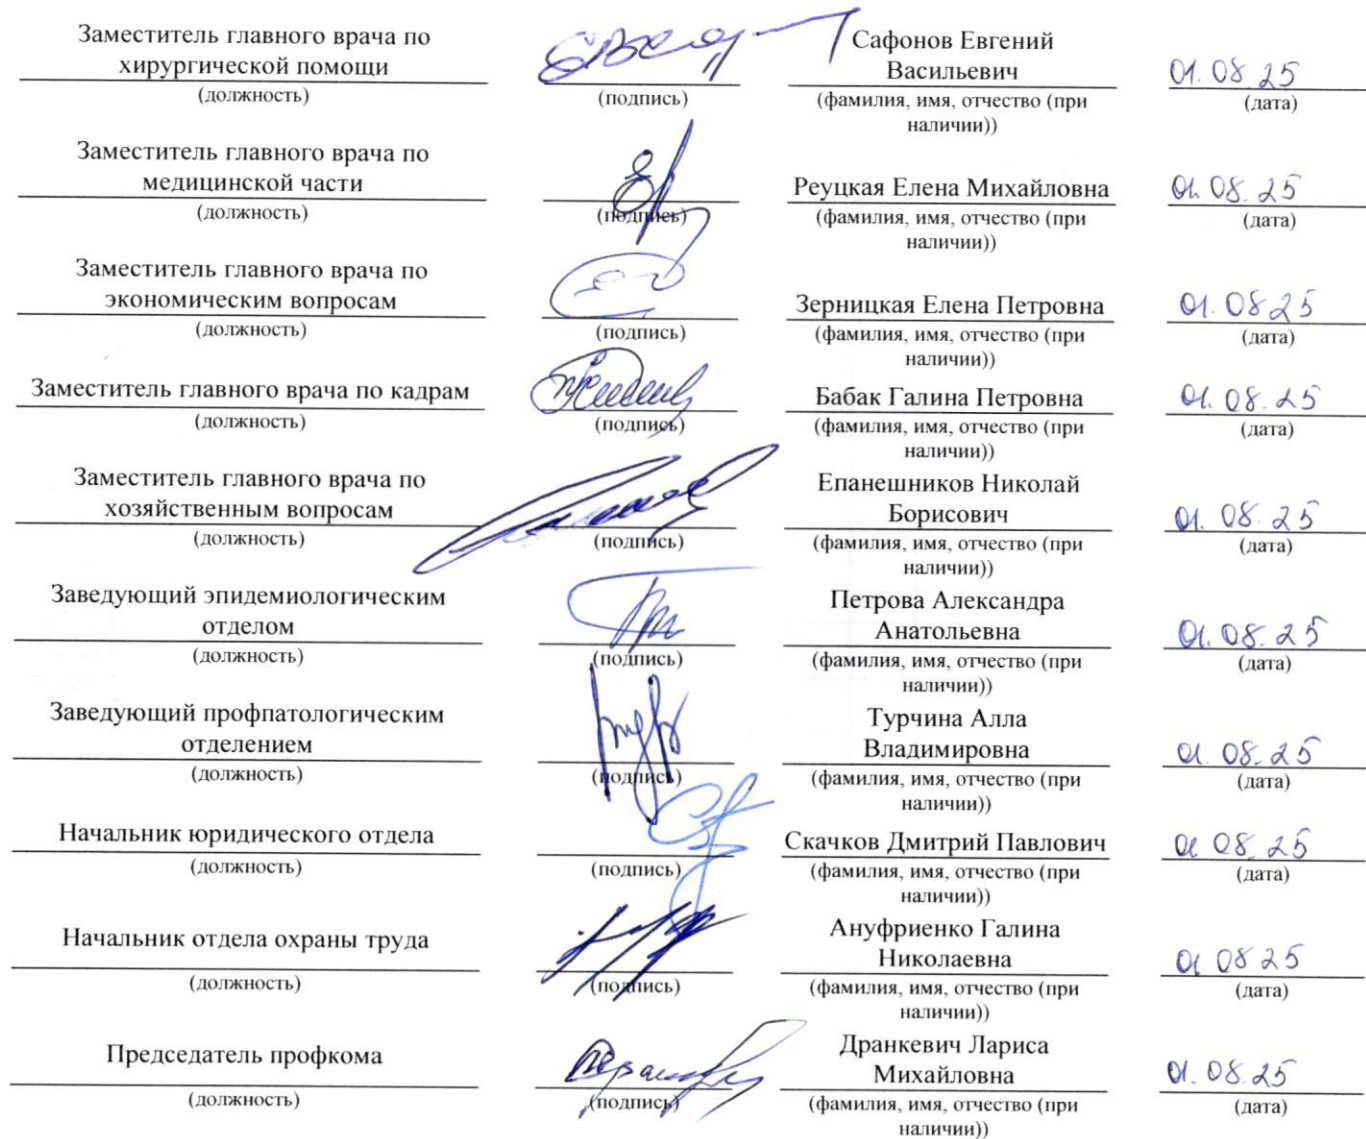 Заместитель главного врача по
хирургической помощи
(должность)
(подпись)
Сафонов Евгений
Васильевич
(фамилия, имя, отчество (при
наличии))
01.08.25
(дата)
Заместитель главного врача по
медицинской части
(должность)
(подпись)
Реуцкая Елена Михайловна
(фамилия, имя, отчество (при
наличии))
01.08.25
(дата)
Заместитель главного врача по
экономическим вопросам
(должность)
(подпись)
Зерницкая Елена Петровна
(фамилия, имя, отчество (при
наличии))
01.08.25
(дата)
Заместитель главного врача по кадрам
(должность)
(подпись)
Бабак Галина Петровна
(фамилия, имя, отчество (при
наличии))
01.08.25
(дата)
Заместитель главного врача по
хозяйственным вопросам
(должность)
(подпись)
Епанешников Николай
Борисович
(фамилия, имя, отчество (при
наличии))
01.08.25
(дата)
Заведующий эпидемиологическим
отделом
(должность)
(подпись)
Петрова Александра
Анатольевна
(фамилия, имя, отчество (при
наличии))
01.08.25
(дата)
Заведующий профпатологическим
отделением
(должность)
(подпись)
Турчина Алла
Владимировна
(фамилия, имя, отчество (при
наличии))
01.08.25
(дата)
Начальник юридического отдела
(должность)
(подпись)
Скачков Дмитрий Павлович
(фамилия, имя, отчество (при
наличии))
01 08.25
(дата)
Начальник отдела охраны труда
(должность)
(подпись)
Ануфриенко Галина
Николаевна
(фамилия, имя, отчество (при
наличии))
01 08 25
(дата)
Председатель профкома
(должность)
(подпись)
Дранкевич Лариса
Михайловна
(фамилия, имя, отчество (при
наличии))
01.08.25
(дата)